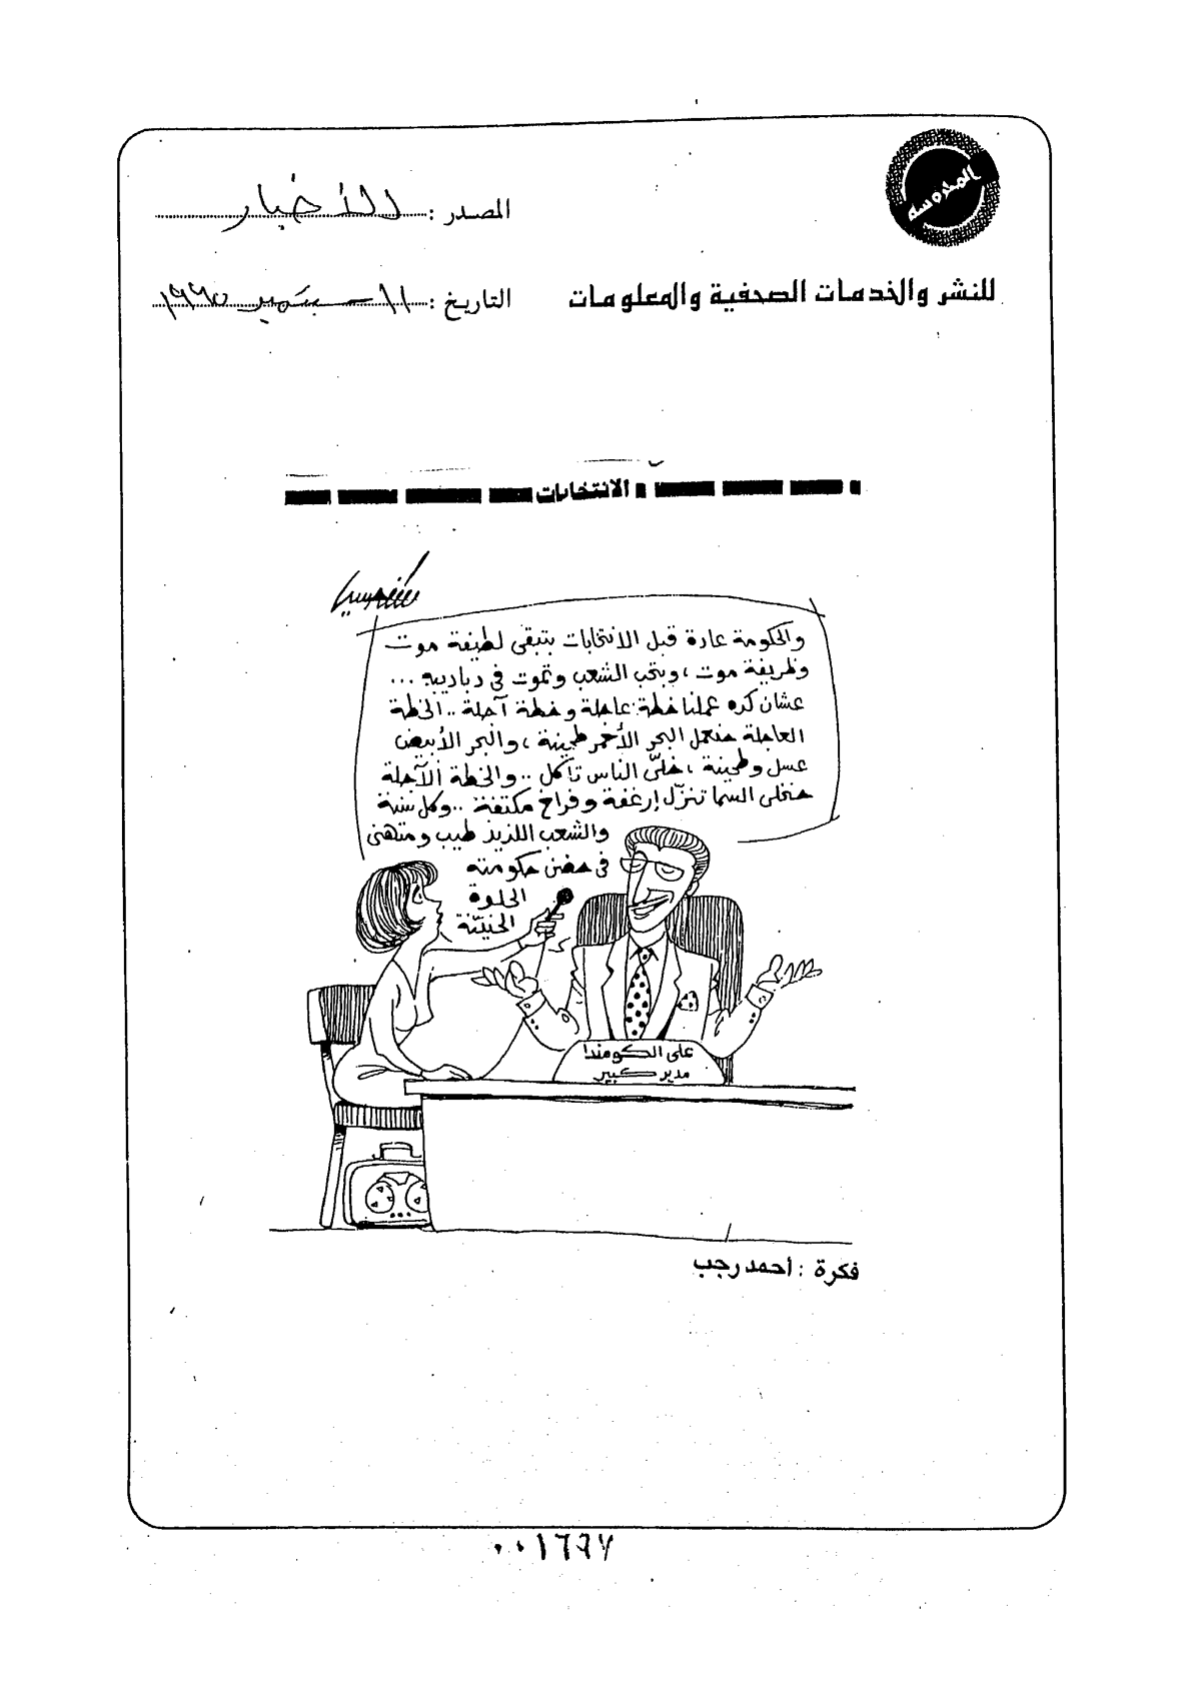 المحروسة
المصدر : الأخبار
للنشر والخدمات الصحفية والمعلومات
التاريخ : ١١ سبتمبر ١٩٩٥
الانتخابات
والحكومة عادة قبل الانتخابات بتبقى لطيفة موت
وظريفة موت ، وبتحب الشعب وتموت فى دباديبه ...
عشان كده عملنا خطة عاجلة وخطة آجلة .. الخطة
العاجلة حنعمل البحر الأحمر طحينة ، والبحر الأبيض
عسل وطحينة ، خلّى الناس تاكل .. والخطة الآجلة
حنخلى السما تنزّل إرغفة وفراخ مكتفة .. وكل سنة
والشعب اللذيذ طيب ومتهنى
فى حضن حكومته
الحلوة
الحنيّنة
على الكومندا
مدير كبير
فكرة : أحمد رجب
٠٠١٦٩٧